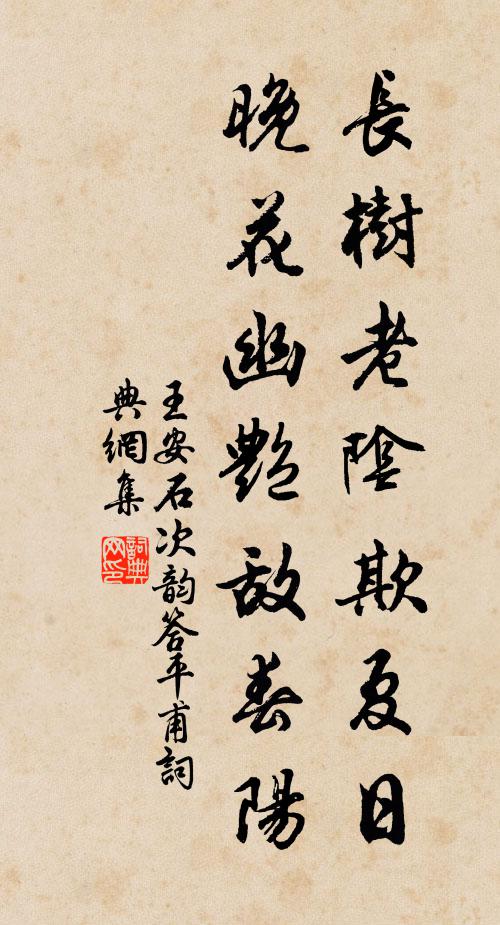 長樹老陰欺夏日
晚花幽艷敌春陽
王安石次韵答平甫詞
典網集
詞典
网印